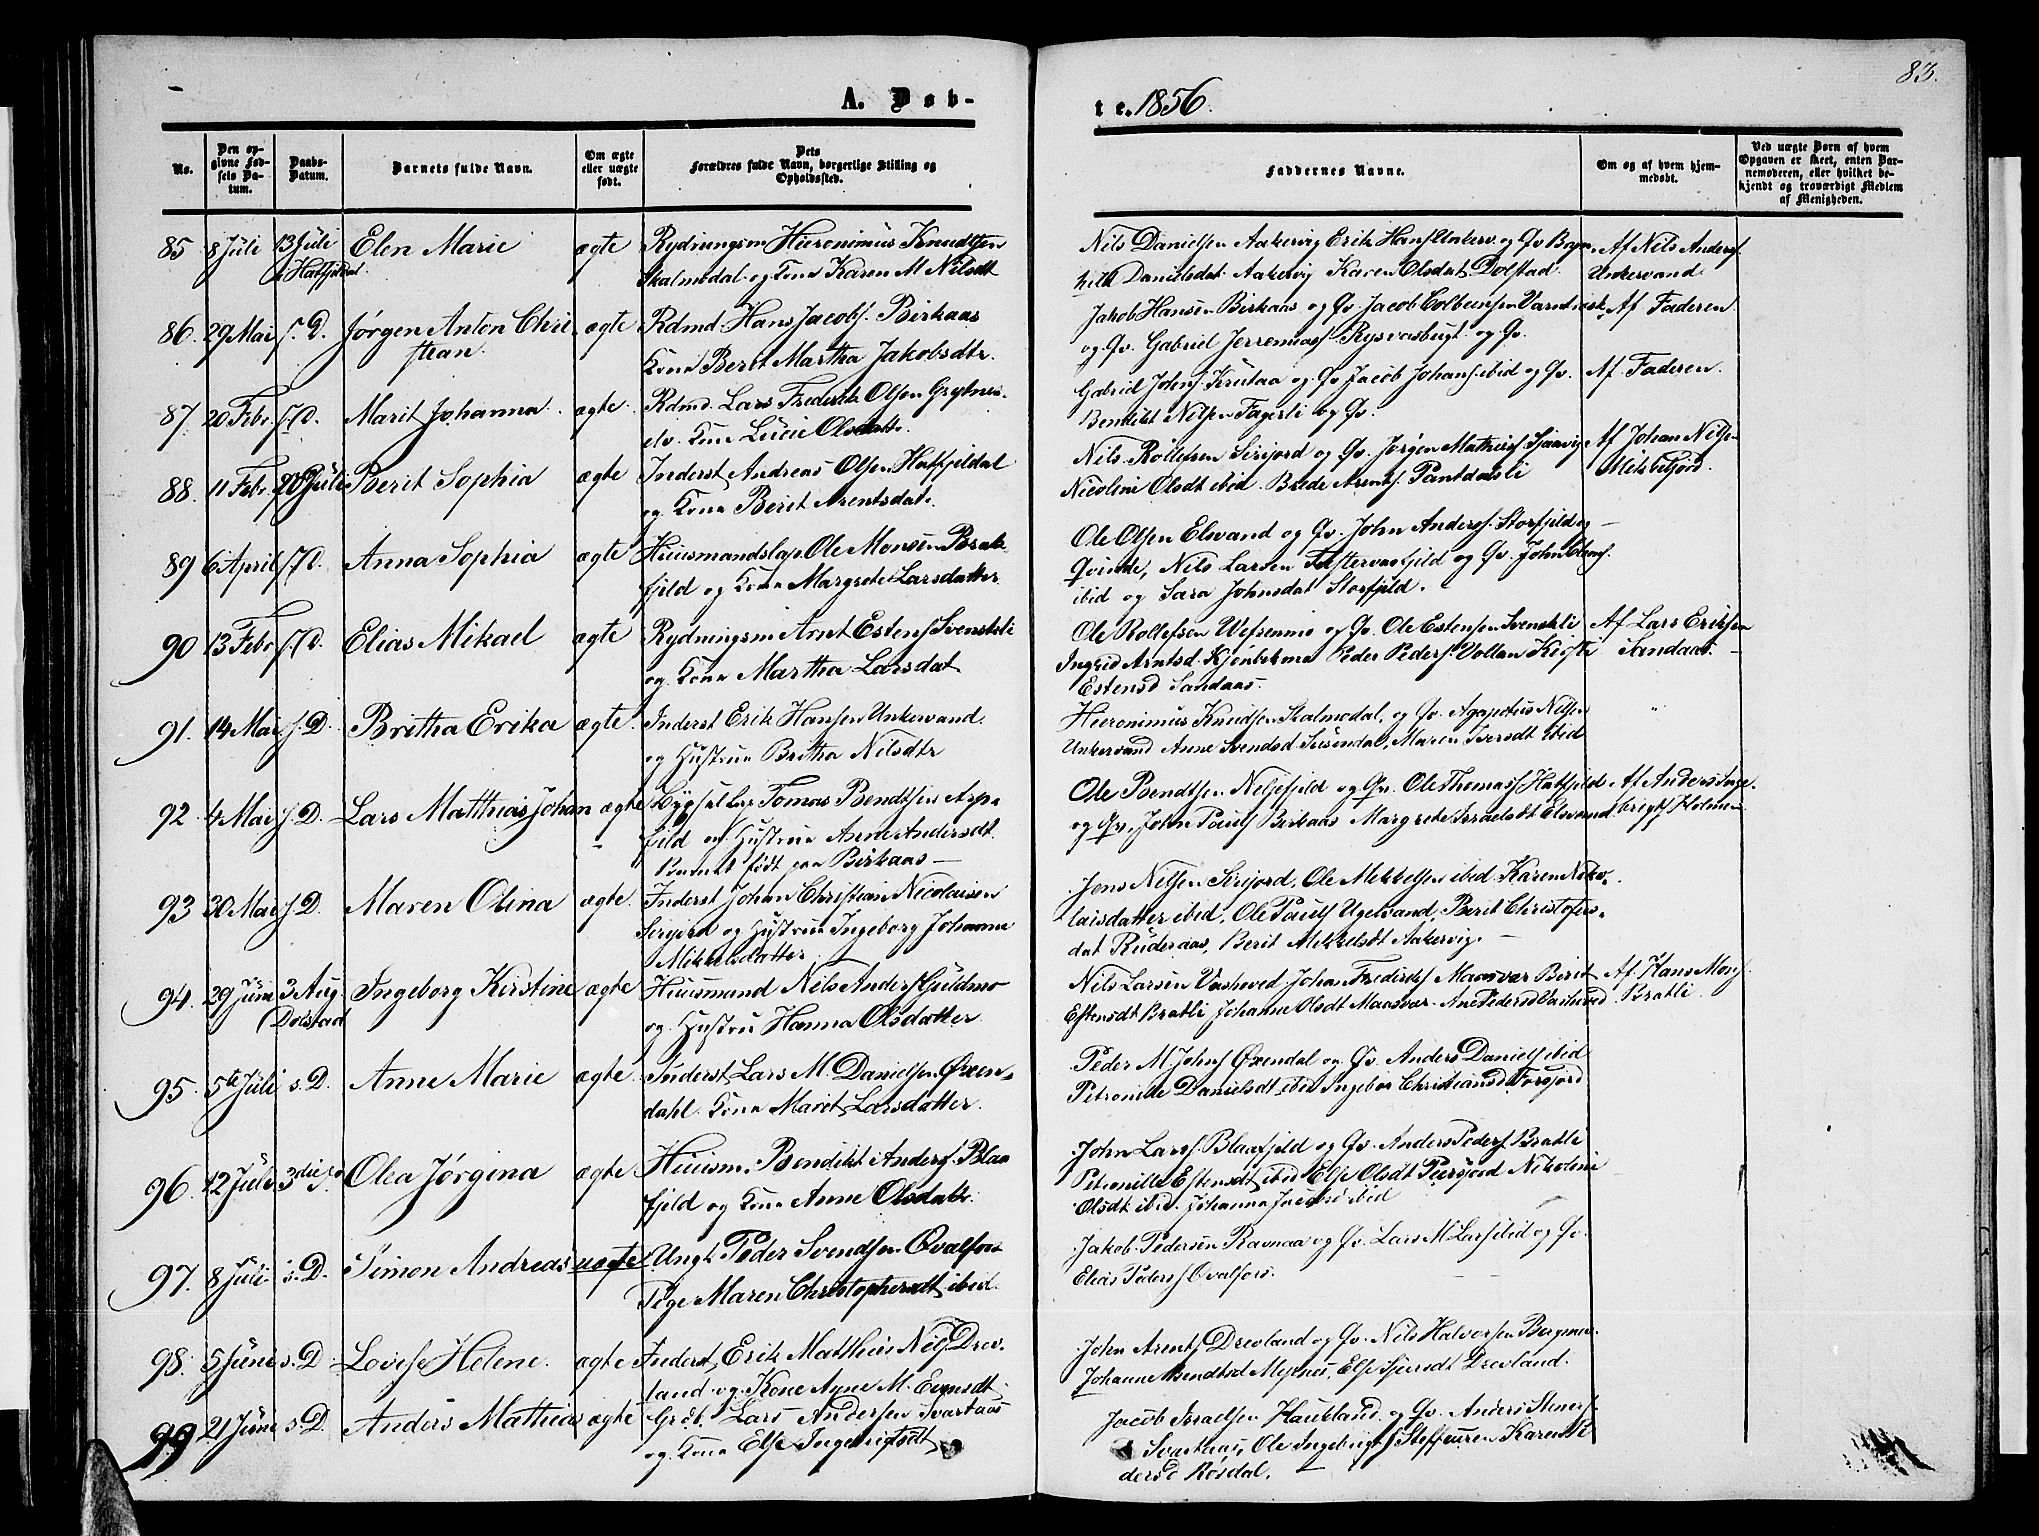 83.
A. Døb-
te. 1856.
No.
Den op-
givne Fød-
sels Da-
tum.
Daabs-
Datum.
Barnets fulde Navn.
Om ægte
eller uægte
født.
Dets
Forældres fulde Navn, borgerlige Stilling og
Opholdssted.
Faddernes Navne.
Om og af hvem hjem-
medøbt.
Ved uægte Børn af hvem
Opgaven er skeet, enten Bar-
nemoderen, eller hvilket be-
kjendt og troværdigt Medlem
af Menigheden.
85 8 Juli 13 Juli Elen Marie ægte Rydningsm Hieronimus Knudtsen
i Hatfjeldal Skalmodal og Kona Karen M Nilsdt
Nils Danielsen Aakervig Erik Hans Unkerv. og Qv Bagn
hild Danielsdat Aakervig Karen Olsdat Dolstad
Af Nils Anders
Unkervand
86. 29 Mai s. D. Jørgen Anton Chri ægte Rdmd Hans Jacobs. Birkaas
stian. Kona Berit Martha Jakobsdtr
Jakob Hansen Birkaas og Qv. Jacob Colbensen Varntræsk
og Qv. Gabriel Jerremias Rysvasbugt og Qv.
Af Faderen
87. 20 Febr s. D. Marit Johanna ægte Rdmd. Lars Frederik Olsen Grytnes-
elv. Kona Lucie Olsdatt.
Gabriel Johns Krutaa og Qv Jacob Johans. ibid og Qv.
Bendikt Nilsen Fagerli og Qv.
Af Faderen.
88. 11 Febr. 20 Juli Berit Sophia ægte Inderst Andreas Olsen Hatfjeldal
og Kona Berit Arentsdat.
Nils Rollefsen Sirijord og Qv. Jørgen Mathias Sjaavig
Nicoline Olsdt ibid. Brede Arents. Pantdalsli
Af Johan Nils-
89 6 April s. D. Anna Sophia ægte Huusmandslap Ole Monsen Brak-
fjeld og Kona Margrete Larsdatter
Ole Olsen Elsvand og Qv. John Anders. Storfjeld og
Qvinde, Nils Larsen Tustervasfjeld og Qv. John Clems.
ibid og Sara Johnsdat Storfjeld.
90 13 Febr s. D. Elias Mikael ægte Rydningsm Arnt Estens Svenskli
og Kona Martha Larsdat
Ole Rollefsen Wefsenmo og Qv. Ole Estensen Svenskli
Ingrid Arntsd. Peder Peders. Vollan Kirsti
Estensd Sandaas.
Af Lars Eriksen
Sandaas.
91. 14 Mai s. D. Britha Erika ægte. Inderst Erik Hansen Unkervand
og Hustrue Britha Nilsdtr
Hieronimus Knudsen Skalmodal, og Qv. Agapetus Nilsen
Unkervand Anne Svendsd Susendal, Maren Iversdt ibid
92. 4 Mai s. D. Lars Matthias Johan ægte Lap Tomas Bendtsen Arp-
fjeld og Hustrue Anne Andersdt
Barnet født paa Birkaas —
Ole Bendtsen Neljefjeld og Qv. Ole Thomas Hatfjeld
og Qv. John Pauls Birkaas Margrete Israelsdt Elsvand
Af Anders Inge-
brigts Holmen
93 30 Mai s. D. Maren Olina ægte. Inderst Johan Christian Nicolaisen
Sirijord og Hustrue Ingeborg Johanne
Mikkelsdatter
Jens Nilsen Sirijord, Ole Mikkelsen ibid Karen Niko-
laisdatter ibid, Ole Pauls Ugelvand, Berit Christofers-
dat Ruderaas, Berit Mikkelsdt Aakervig.
94. 29 Juni 3 Aug Ingeborg Kirstine ægte Huusmand Nils Anders Guldmo
Dolstad og Hustru Hanna Olsdatter
Nils Larsen Vashoved Johan Frederiks Maasvær Berit
Estensdt Bratli Johanne Olsdt Maasvær. Ane Pedersd Vashoved
Af Hans Mons
Bratli.
95. 5te Juli s. D. Anne Marie ægte. Inderst Lars M. Danielsen Øxen-
dahl. Kona Marit Larsdatter
Peder M Johns Øxendal og Qv. Anders Daniels ibid
Petronille Danielsdt ibid Ingebor Christiansd Forsjord
96. 12 Juli 3die Olea Jørgina ægte Huusm. Bendikt Anders. Blaa
fjeld og Kona Anne Olsdatt.
John Lars Blaafjeld og Qv. Anders Peders Bratli
Petronille Estensdt ibid Else Olsdt Forsjord Nikoline
Olsdt ibid. Johanna Jacobsd ibid
97. 8 Juli s. D. Simon Andreas uægte Ungk Peder Svendsen Qvalfors
Pige Maren Christophersdt ibid.
Jakob Pedersen Ravnaa og Qv. Lars M Lars ibid og Qv.
Elias Peders Qvalfors.
98. 5 Juni s. D Lovise Helene. ægte Inderst Erik Mathias Nils Drev-
land og Kone Anne M. Evensdt
John Arents Drevland og Qv. Nils Halvorsen
Johanne Bendtsd Else Sjursdt Drevland.
99 21 Juni s. D. Anders Mathias ægte Grdb. Lars Andersen Svartaas
og Kona Else Ingebrigtsdt
Jacob Israelsen Haukland og Qv. Anders Steners-
Svartaas, Ole Ingebrigts Karen Pe
dersd Røsdal.